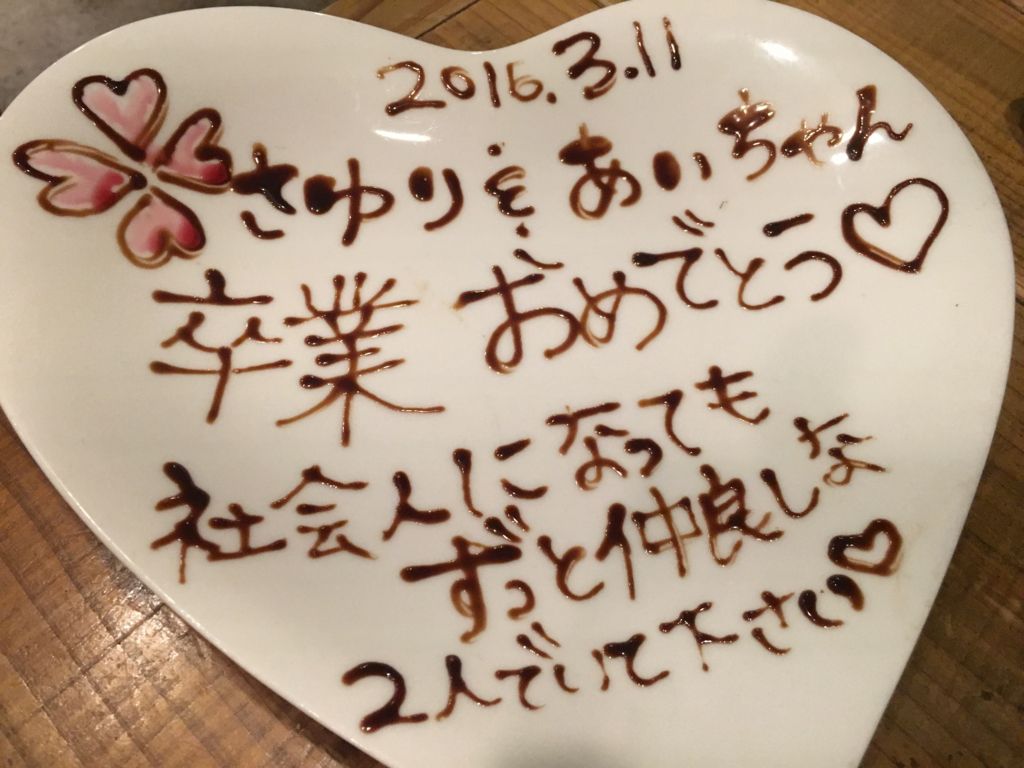 2016.3.11
さゆり&あいちゃん
卒業おめでとう♡
社会人になっても
ずっと仲良しな
2人でいて下さい♡